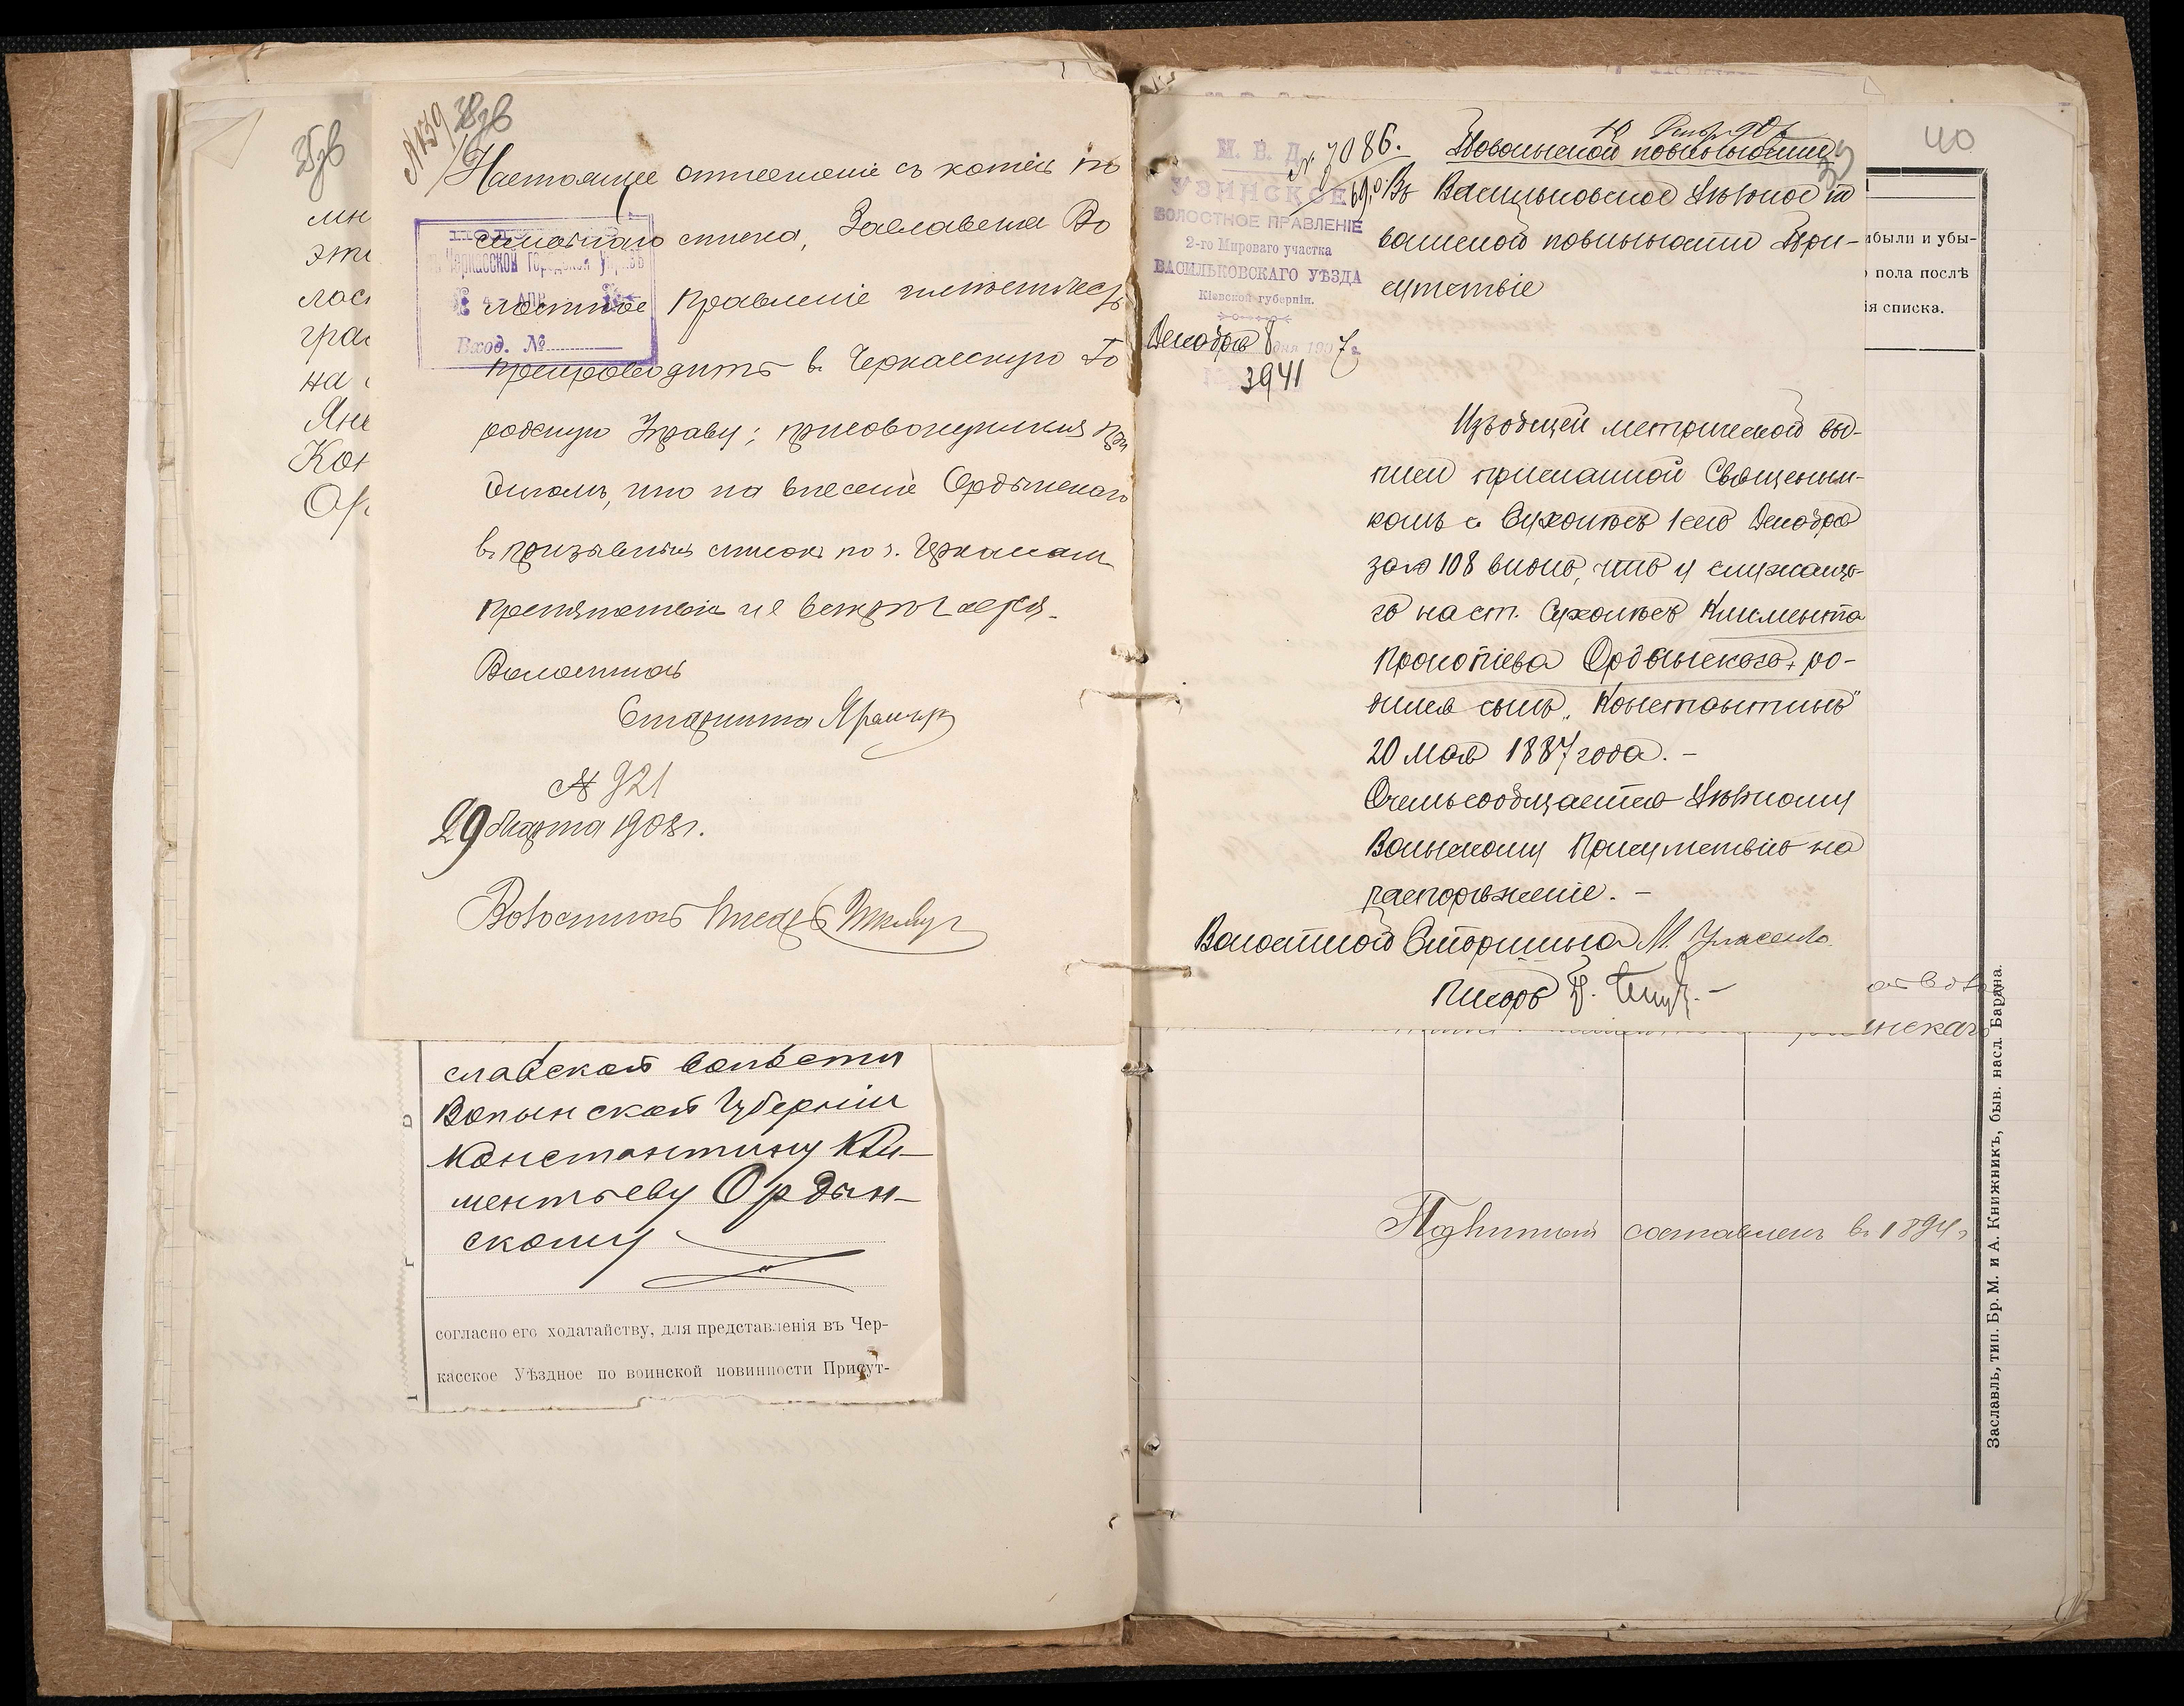 38об
№139
Настоящее отношение съ копіею по
семейнаго списка, Заславское Во
лостное Правленіе
препроводитъ въ Черкасскую Го
родскую Управу; присовокупляя при
этомъ, что на внесеніе Ордынскаго
въ призывные списки по г. Черкасамъ
препятствія не встрѣчается.
Волостной
Старшина
№ 921
29 Марта 1908 г.
Волостной Писарь
Черкасской Городской Управѣ
4 - АПР
Вход. №
35об
мн
эти
лос
гра
на
Янв
Кон
Ор
славской волости
Волынской Губерніи
Константину Кли-
ментьеву Ордын-
скому
согласно его ходатайству, для представленія въ Чер-
касское Уѣздное по воинской повинности Присут-
М. В. Д.
УЗИНСКОЕ
ВОЛОСТНОЕ ПРАВЛЕНІЕ
2-го Мироваго участка
ВАСИЛЬКОВСКАГО УѢЗДА
Кіевской губерніи.
Декабря 8 дня 1907 г.
3941
№ 7086.
По воинской повинности
39
Въ Васильковское Уѣздное по
воинской повинности При-
сутствіе
Изъ общей метрической вы-
писи присланной Священни-
комъ с. Сухолѣсъ 1 сего Декабря
за № 108 видно, что у служаща-
го на ст. Сухолѣсъ Климента
Прокопіева Ордынскаго, ро-
дился сынъ „Константинъ"
20 мая 1887 года. -
О чемъ сообщается Уѣздному
Воинскому Присутствію на
распоряженіе. -
Волостной Старшина М.
Писарь
40
ибыли и убы-
о пола послѣ
ія списка.
инскаго
Подлинный составленъ въ 1894 г.
Заславль, тип. Бр. М. и А. Книжникъ, быв. насл. Бардна.